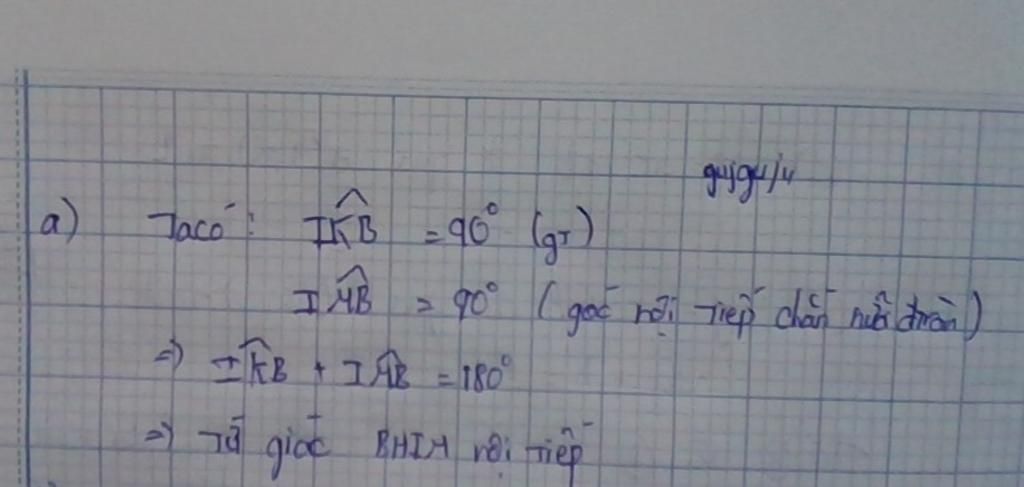 a) Ta có: IKB = 90° (gt)
IMB = 90° (góc nội tiếp chắn nửa đtròn)
=> IKB + IMB = 180°
=> Tứ giác BHIM nội tiếp